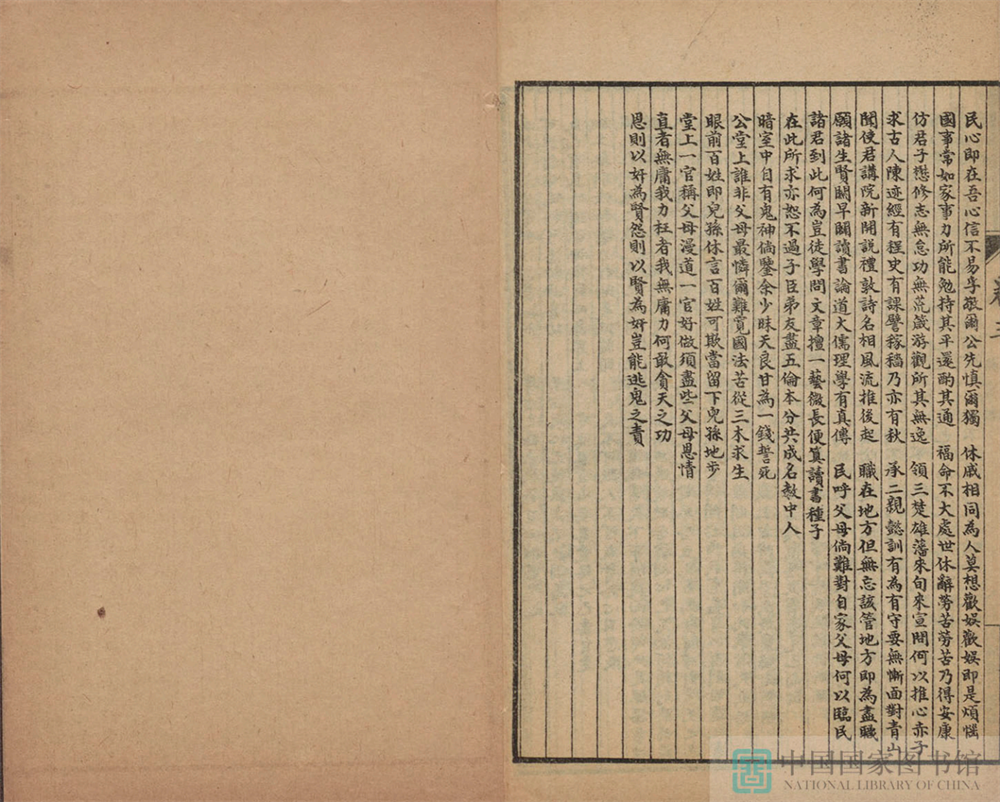 民心即在吾心信不易孚敬爾公先慎爾獨　休戚相同為人莫想歡娛歡娛即是煩惱
國事常如家事力所能勉持其平還酌其通　福命不大處世休辭勞苦勞苦乃得安康
仿君子懋修志無怠功無荒箴游觀所其無逸　領三楚雄藩來旬來宣問何以推心赤子
求古人陳迹經有程史有課譬稼穡乃亦有秋　承二親懿訓有為有守要無慚面對青山
聞使君講院新開說禮敦詩名相風流推後起　職在地方但無忘該管地方即為盡職
願諸生賢關早闢讀書論道大儒理學有真傳　民呼父母倘難對自家父母何以臨民
諸君到此何為豈徒學問文章擅一藝微長便算讀書種子
在此所求亦恕不過子臣弟友盡五倫本分共成名教中人
暗室中自有鬼神倘鑒余少昧天良甘為一錢誓死
公堂上誰非父母最憐爾難寬國法苦從三木求生
眼前百姓即兒孫休言百姓可欺當留下兒孫地步
堂上一官稱父母漫道一官好做須盡些父母恩情
直者無庸我力枉者我無庸力何敢貪天之功
恩則以奸為賢怨則以賢為奸豈能逃鬼之責
中国国家图书馆
NATIONAL LIBRARY OF CHINA